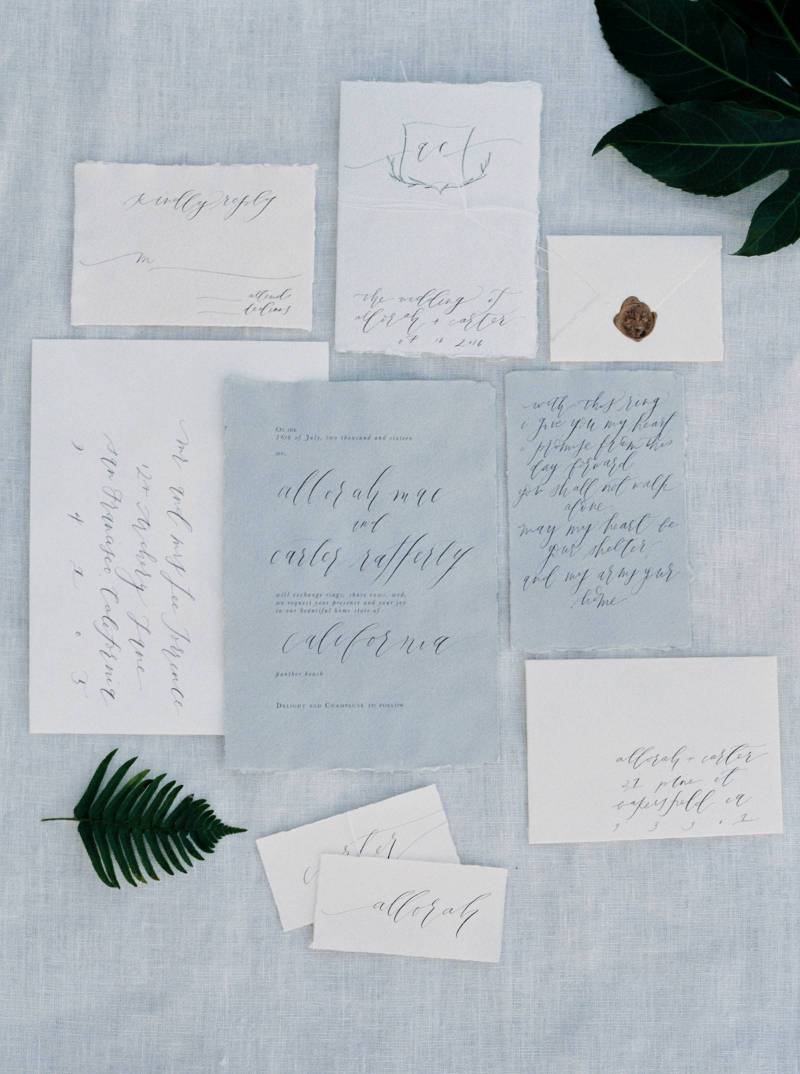 kindly reply
m
attend
declines
ac
the wedding of
allorah + carter
2016
mr and mrs Lee Torrence
120 Archery Lane
San Francisco California
9 4 1 0 3
On the
16th of July, two thousand and sixteen
we,
allorah mae
and
carter rafferty
will exchange rings, share vows, wed,
we request your presence and your joy
in our beautiful home state of
california
panther beach
Delight and Champagne to follow
with this ring
i give you my heart
i promise from this
day forward
you shall not walk
alone
may my heart be
your shelter
and my arms your
home
allorah + carter
ct
bakersfield ca
carter
allorah